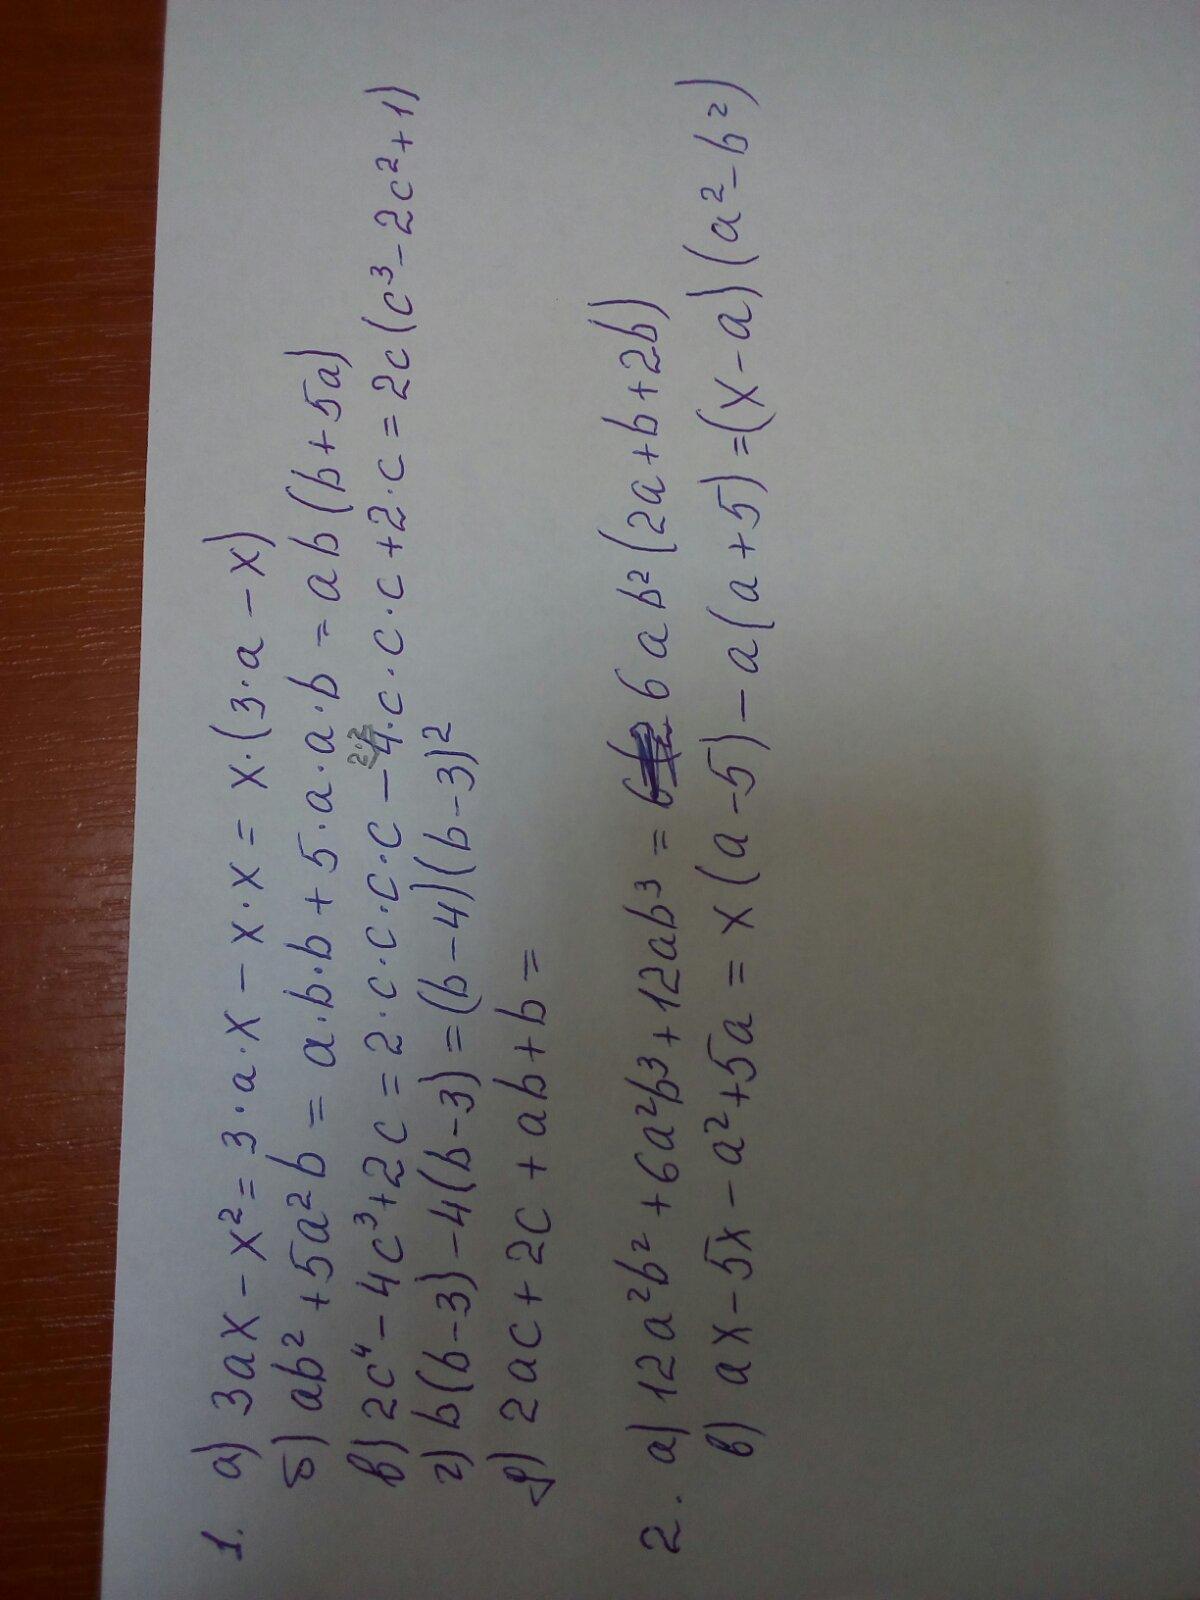 1. а) 3ax - x² = 3·a·x - x·x = x·(3·a - x)
б) ab² + 5a²b = a·b·b + 5·a·a·b = ab(b + 5a)
в) 2c⁴ - 4c³ + 2c = 2·c·c·c·c - 4·c·c·c + 2·c = 2c(c³ - 2c² + 1)
г) b(b-3) - 4(b-3) = (b-4)(b-3)²
д) 2ac + 2c + ab + b =
2. а) 12a²b² + 6a²b³ + 12ab³ = 6ab²(2a + b + 2b)
в) ax - 5x - a² + 5a = x(a-5) - a(a+5) = (x-a)(a² - b²)